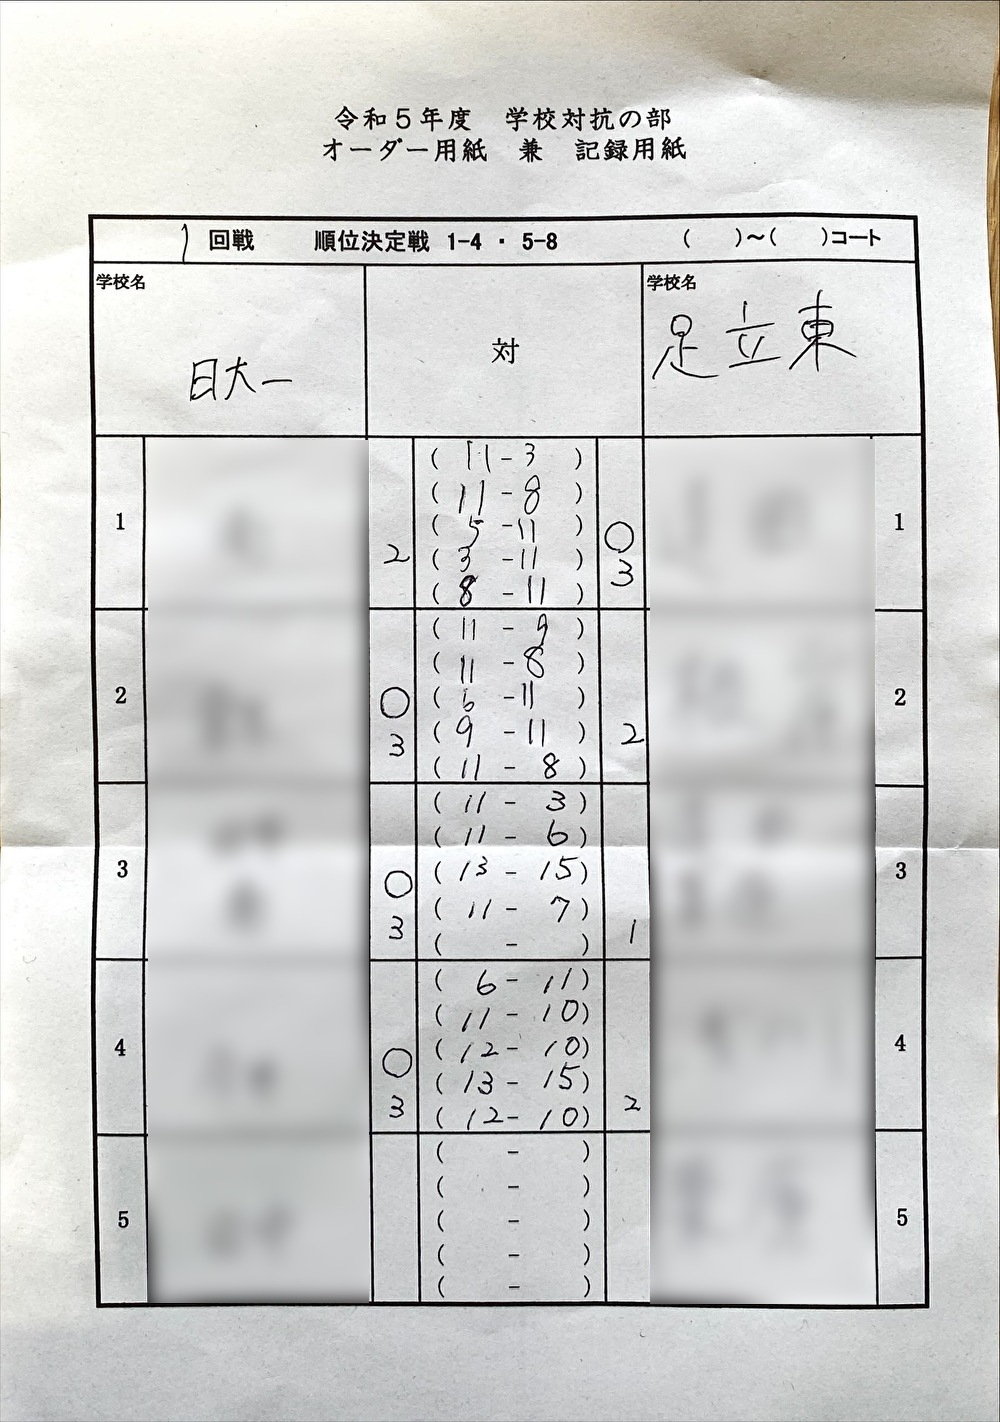 令和5年度 学校対抗の部
オーダー用紙 兼 記録用紙
1 回戦 順位決定戦 1-4 ・ 5-8 ( )～( )コート
学校名 学校名
日大一 対 足立東
1 1
( 11 - 3 )
( 11 - 8 )
( 5 - 11 )
2 ( 3 - 11 ) ○ 3
( 8 - 11 )
2 2
( 11 - 9 )
( 11 - 8 )
( 6 - 11 )
○ 3 ( 9 - 11 ) 2
( 11 - 8 )
3 3
( 11 - 3 )
( 11 - 6 )
( 13 - 15 )
○ 3 ( 11 - 7 ) 1
( - )
4 4
( 6 - 11 )
( 11 - 10 )
( 12 - 10 )
○ 3 ( 13 - 15 ) 2
( 12 - 10 )
5 5
( - )
( - )
( - )
( - )
( - )